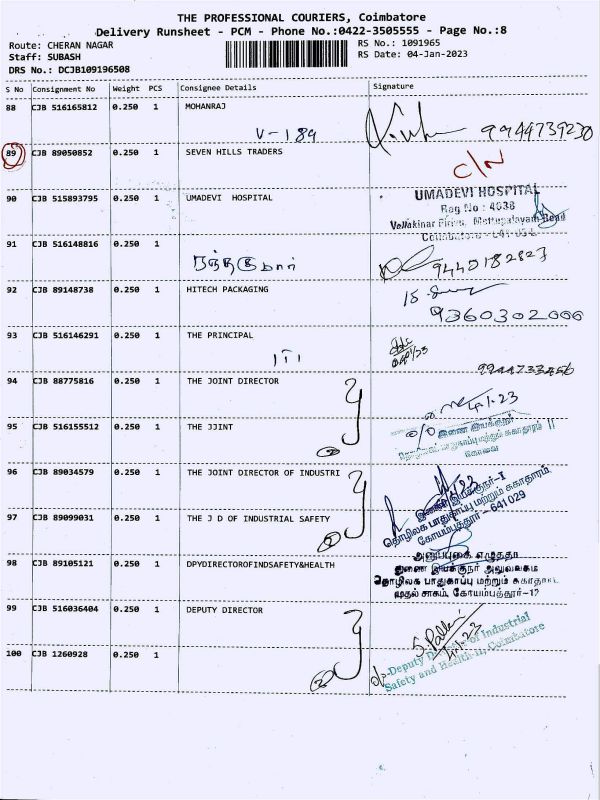 THE PROFESSIONAL COURIERS, Coimbatore
Delivery Runsheet - PCM - Phone No.:0422-3505555 - Page No.:8
Route: CHERAN NAGAR
RS No.: 1091965
Staff: SUBASH
RS Date: 04-Jan-2023
DRS No.: DCJB109196508
S No Consignment No Weight PCS Consignee Details Signature
88 CJB 516165812 0.250 1 MOHANRAJ
V-189 9944739230
89 CJB 89050852 0.250 1 SEVEN HILLS TRADERS
C/N
90 CJB 515893795 0.250 1 UMADEVI HOSPITAL
UMADEVI HOSPITAL
Reg No : 4038
Mettupalayam Road
Coimbatore - 641 034
91 CJB 516148816 0.250 1
நந்தகுமார் 9440182827
92 CJB 89148738 0.250 1 HITECH PACKAGING
9360302000
93 CJB 516146291 0.250 1 THE PRINCIPAL
ITI
9944733456
94 CJB 88775816 0.250 1 THE JOINT DIRECTOR
4.1.23
95 CJB 516155512 0.250 1 THE JJINT
o/o இணை இயக்குநர்
தொழிலக பாதுகாப்பு மற்றும் சுகாதாரம் II
கோவை
2
96 CJB 89034579 0.250 1 THE JOINT DIRECTOR OF INDUSTRI
இணை இயக்குநர்-I
தொழிலக பாதுகாப்பு மற்றும் சுகாதாரம்,
கோயம்புத்தூர் - 641 029
97 CJB 89099031 0.250 1 THE J D OF INDUSTRIAL SAFETY
2
98 CJB 89105121 0.250 1 DPYDIRECTOROFINDSAFETY&HEALTH
இணை இயக்குநர் அலுவலகம்
தொழிலக பாதுகாப்பு மற்றும் சுகாதாரம்
முதல் சரகம், கோயம்புத்தூர்-12
99 CJB 516036404 0.250 1 DEPUTY DIRECTOR
S. Pallavi
4.1.23
100 CJB 1260928 0.250 1
2
o/o Deputy Director of Industrial
Safety and Health-II, Coimbatore